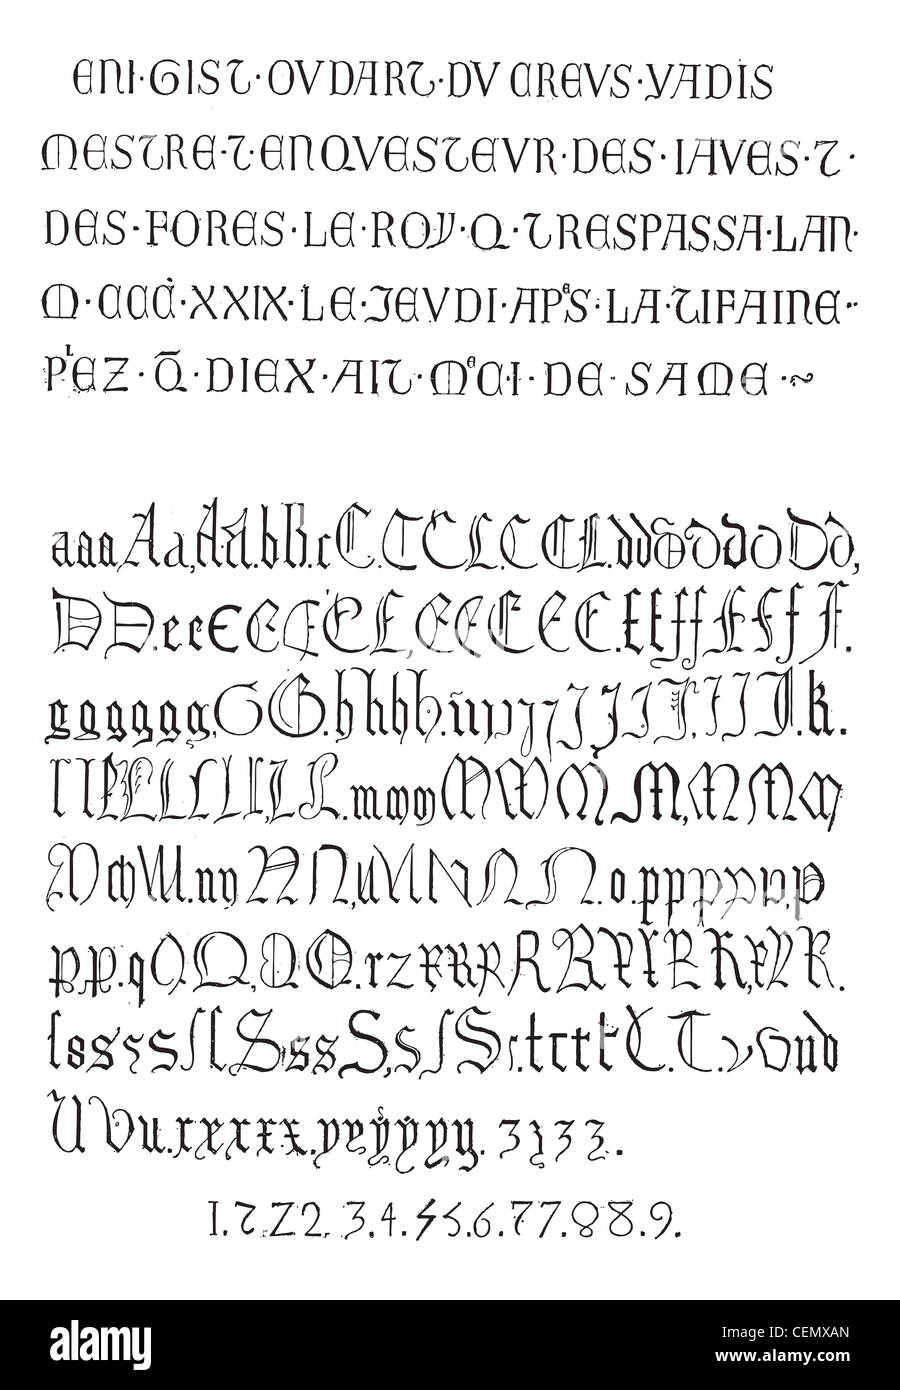 ENI·GIST·OVDART·DV CREVS·YADIS
MESTRE·T·ENQVESTEVR·DES·IAVES·T·
DES·FORES·LE·ROY·Q·TRESPASSA·LAN·
M·CCC·XXIX·LE·JEVDI·APᵉS·LA·TIFAINE··
PᴸEZ·Q̄·DIEX·AIT·MᵉCI·DE·SAME·~
aaaAa,AA.bB.cC.CCCCCC.ddddddoDd,
DD.eeeEEEEEEEEEE.ffffFfff F.
gggggg,GG.hhhh.iiijjjJJJJJ,JJJJ.k.
llLLLLLLL,LL.mmmMMMMM,MMM
MmM.nnNN,NNNNN.o.pppppp,p
pp.qQQ,QQ.rzrrrRRRRRR,rRR.
ſsssssſSssS,sſSſ.ttttT.T.vvub
UVu.xxxxx.yyyyyyy. 3333.
1.2 Z2 3.4.5 5.6.77.88.9.
alamy
alamy
Image ID: CEMXAN
www.alamy.com